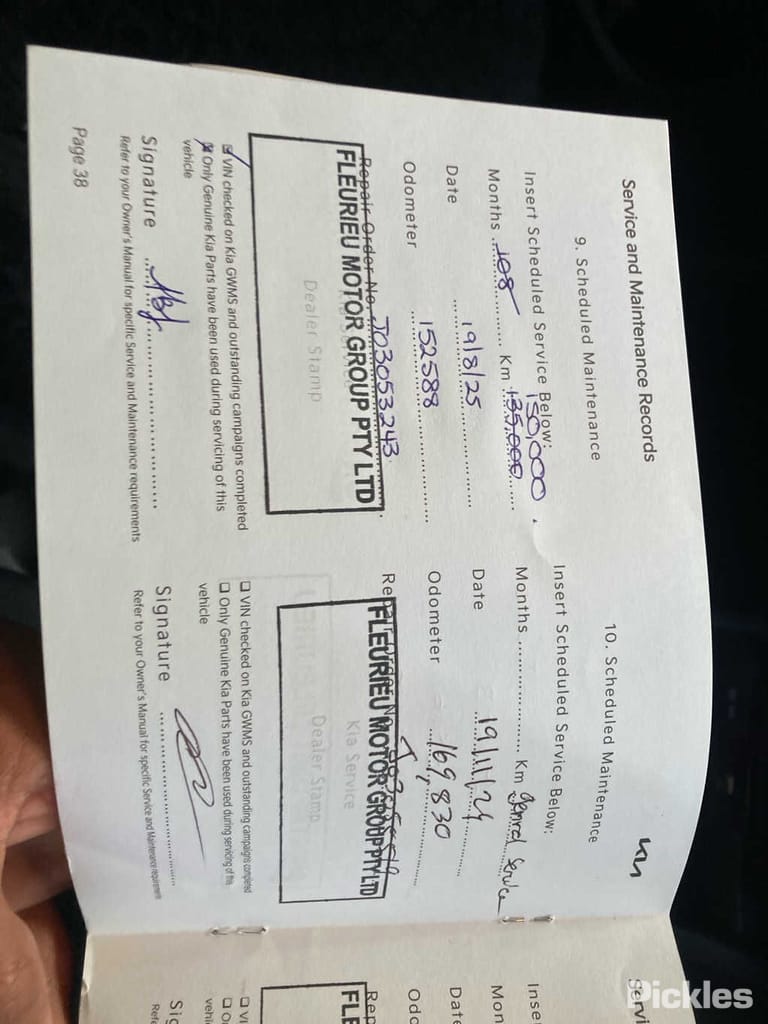 Service and Maintenance Records
9. Scheduled Maintenance
Insert Scheduled Service Below:
150,000
Months 108 Km 135,000
Date 19/8/25
Odometer 152588
Repair Order No. J03053243
FLEURIEU MOTOR GROUP PTY LTD
Dealer Stamp
VIN checked on Kia GWMS and outstanding campaigns completed
Only Genuine Kia Parts have been used during servicing of this
vehicle
Signature
Refer to your Owner's Manual for specific Service and Maintenance requirements
Page 38
KIA
10. Scheduled Maintenance
Insert Scheduled Service Below:
Months Km General Service
Date 19/11/24
Odometer 169,830
FLEURIEU MOTOR GROUP PTY LTD
Kia Service
Dealer Stamp
VIN checked on Kia GWMS and outstanding campaigns completed
Only Genuine Kia Parts have been used during servicing of this
vehicle
Signature
Refer to your Owner's Manual for specific Service and Maintenance requirements
Servi
Inse
Mon
Date
Odo
Rep
FLE
VI
O
vehi
Sig
Refe
Pickles